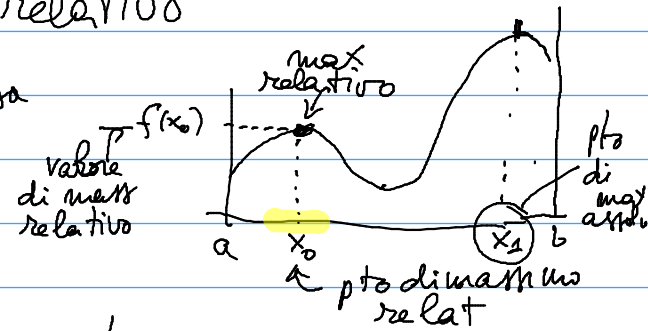 relativo
sa
max
relativo
f(x₀)
valore
di mass
relativo
pto
di
max
assolu
a
x₀
x₁
b
pto di massimo
relat